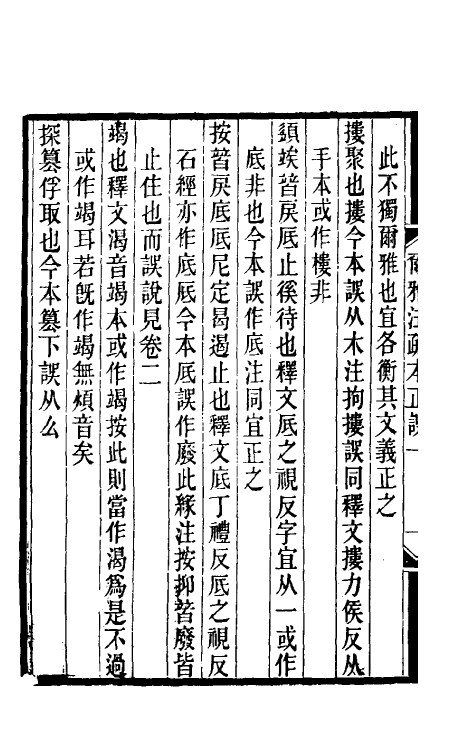 爾雅注疏本正誤一
此不獨爾雅也宜各衡其文義正之
摟聚也摟今本誤从木注拘摟誤同釋文摟力侯反从
手本或作樓非
頾竢替戾厎止徯待也釋文厎之視反字宜从一或作
底非也今本誤作底注同宜正之
按替戾厎底尼定曷遏止也釋文底丁禮反厎之視反
石經亦作底厎今本厎誤作廢此緣注按抑替廢皆
止住也而誤說見卷二
竭也釋文渴音竭本或作竭按此則當作渴爲是不過
或作竭耳若旣作竭無煩音矣
探篡俘取也今本篡下誤从么